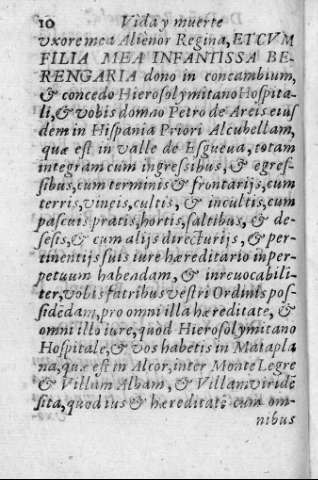 10 Vida y muerte
vxore mea Alienor Regina, ET CVM
FILIA MEA INFANTISSA BE-
RENGARIA dono in concambium,
& concedo Hierosolymitano Hospita-
li, & vobis domno Petro de Areis eius
dem in Hispania Priori Alcubellam,
quæ est in valle de Esgueva, totam
integram cum ingressibus, & egres-
sibus, cum terminis & frontarijs, cum
terris, vineis, cultis, & incultis, cum
pascuis pratis, hortis, saltibus, & de-
fesis, & cum alijs directurijs, & per-
tinentijs suis iure hæreditario in per-
petuum habendam, & inreuocabili-
ter, vobis fatribus vestri Ordinis pos-
sidedam, pro omni illa hæreditate, &
omni illo iure, quod Hierosolymitano
Hospitale, & vos habetis in Matapla
na, quæ est in Alcor, inter Monte Legre
& Villam Albam, & Villam viride
sita, quod ius & hæreditatē cum om-
nibus